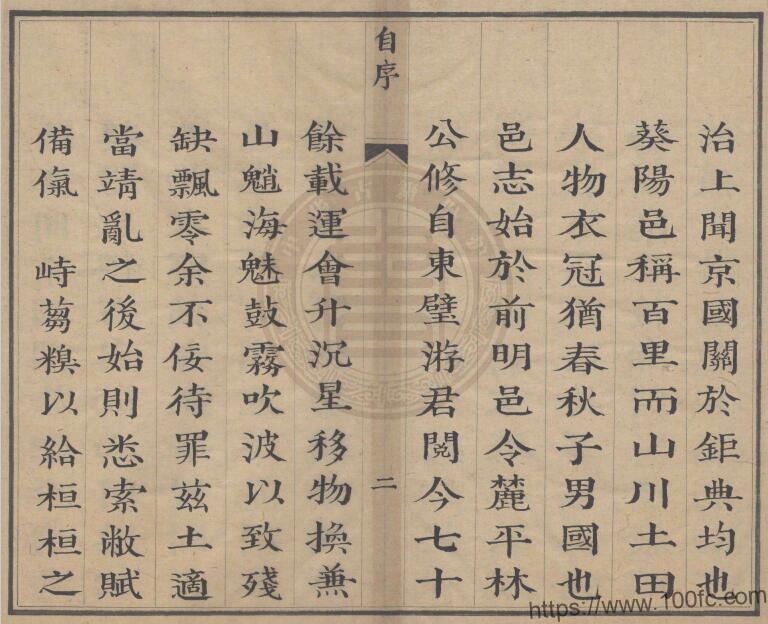 治上聞京國關於鉅典均也
葵陽邑稱百里而山川土田
人物衣冠猶春秋子男國也
邑志始於前明邑令麓平林
公修自東壁游君閱今七十
自序
二
餘載運會升沉星移物換兼
山魈海魅鼓霧吹波以致殘
缺飄零余不佞待罪茲土適
當靖亂之後始則悉索敝賦
備偫峙芻糗以給桓桓之
https://www.100fc.com